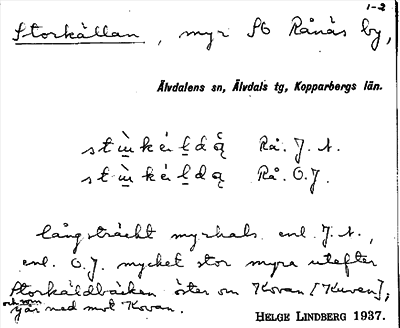 1-2
Storkällan, myr SO Rånäs by,
Älvdalens sn, Älvdals tg, Kopparbergs län.
Rå. J. A.
Rå. O. J.
långsträckt myrhals enl. J. A.,
enl. O. J. mycket stor myra utefter
Storkäldbäcken öster om Kovan [Kuven];
och som går ned mot Kovan.
HELGE LINDBERG 1937.